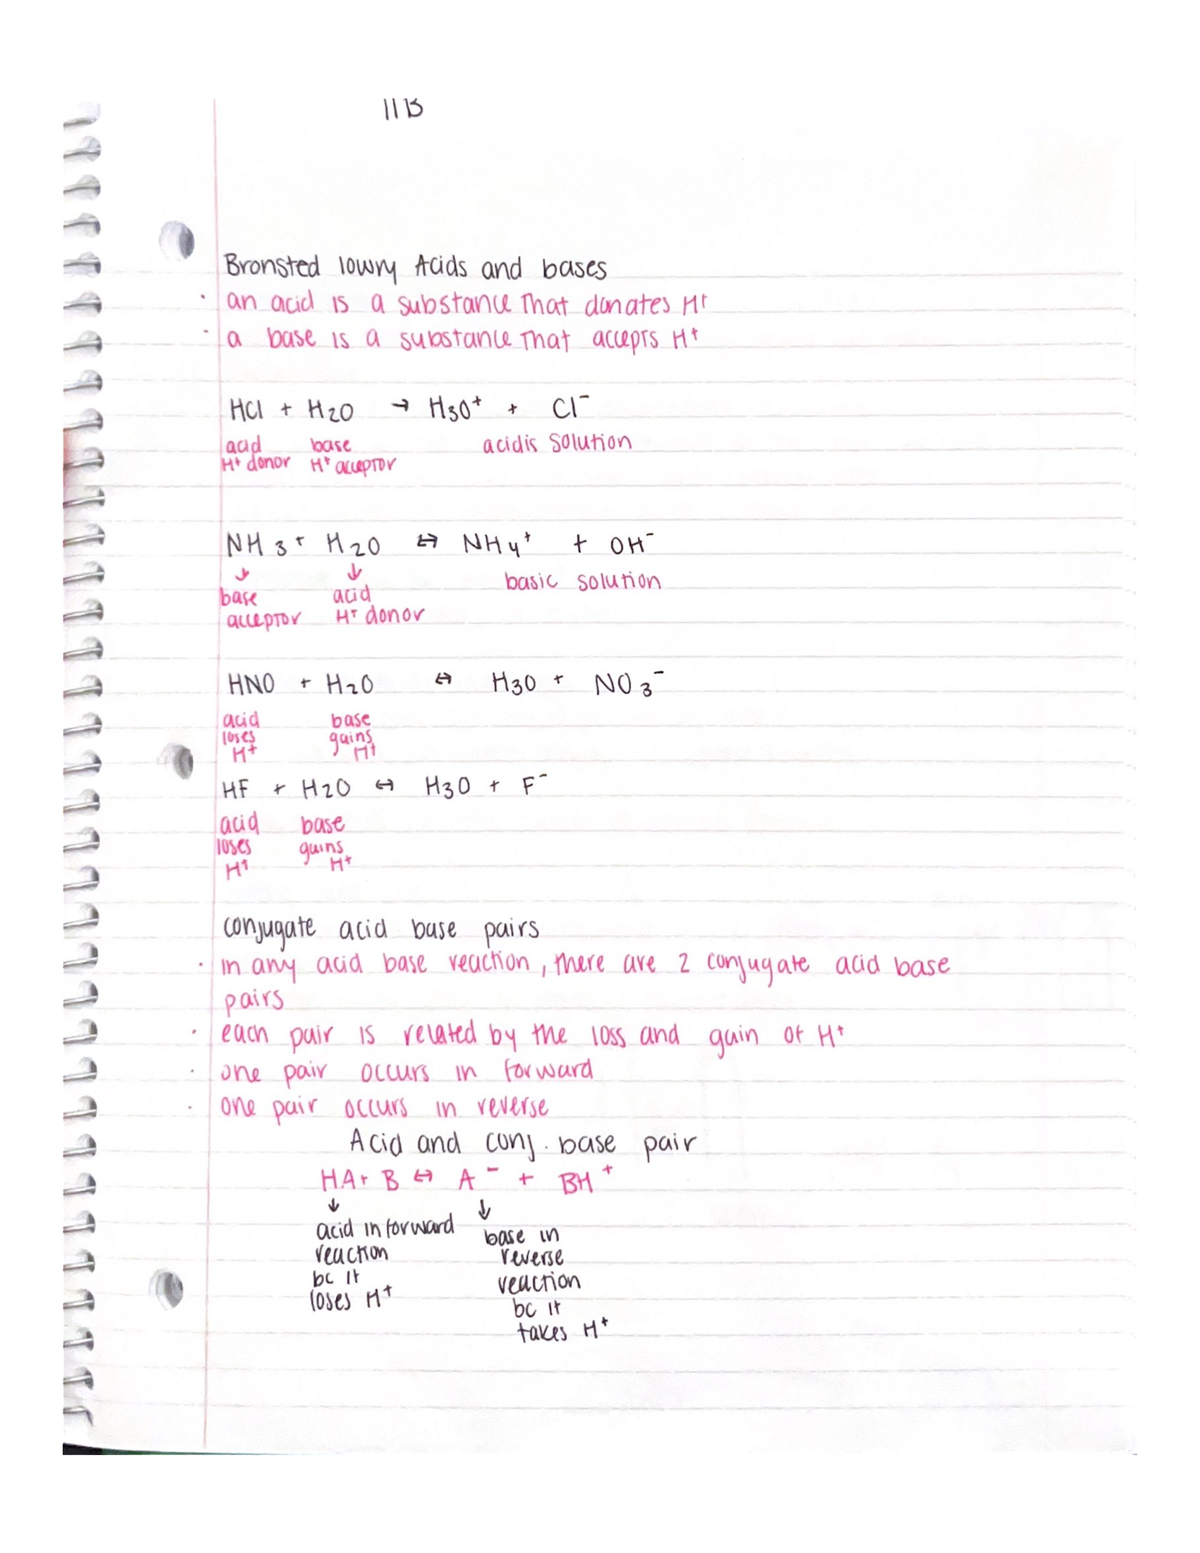 11B
Bronsted lowry Acids and bases
· an acid is a substance that donates H+
· a base is a substance that accepts H+
HCl + H2O → H3O+ + Cl-
acid base acidis solution
H+ donor H+ acceptor
NH3+ H2O ↔ NH4+ + OH-
↓ ↓ basic solution
base acid
acceptor H+ donor
HNO + H2O ↔ H3O + NO3-
acid base
loses gains
H+ H+
HF + H2O ↔ H3O + F-
acid base
loses gains
H+ H+
conjugate acid base pairs
· in any acid base reaction, there are 2 conjugate acid base
pairs
· each pair is related by the loss and gain of H+
· one pair occurs in forward
· one pair occurs in reverse
Acid and conj. base pair
HA+ B ↔ A- + BH+
↓ ↓
acid in forward base in
reaction reverse
bc it reaction
loses H+ bc it
takes H+